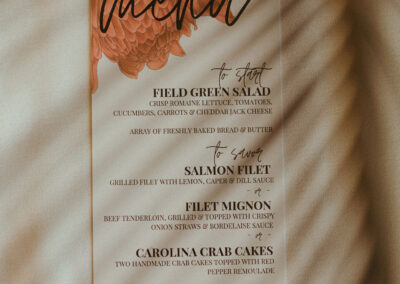 to start
FIELD GREEN SALAD
CRISP ROMAINE LETTUCE, TOMATOES,
CUCUMBERS, CARROTS & CHEDDAR JACK CHEESE
ARRAY OF FRESHLY BAKED BREAD & BUTTER
to savor
SALMON FILET
GRILLED FILET WITH LEMON, CAPER & DILL SAUCE
- or -
FILET MIGNON
BEEF TENDERLOIN, GRILLED & TOPPED WITH CRISPY
ONION STRAWS & BORDELAISE SAUCE
- or -
CAROLINA CRAB CAKES
TWO HANDMADE CRAB CAKES TOPPED WITH RED
PEPPER REMOULADE